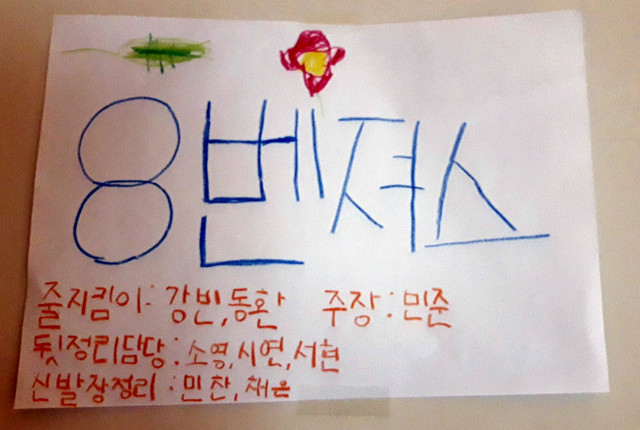 8벤져스
줄지킴이: 강빈,동환 주장:민준
뒷정리담당:소영,시연,서현
신발장정리:민찬,채은